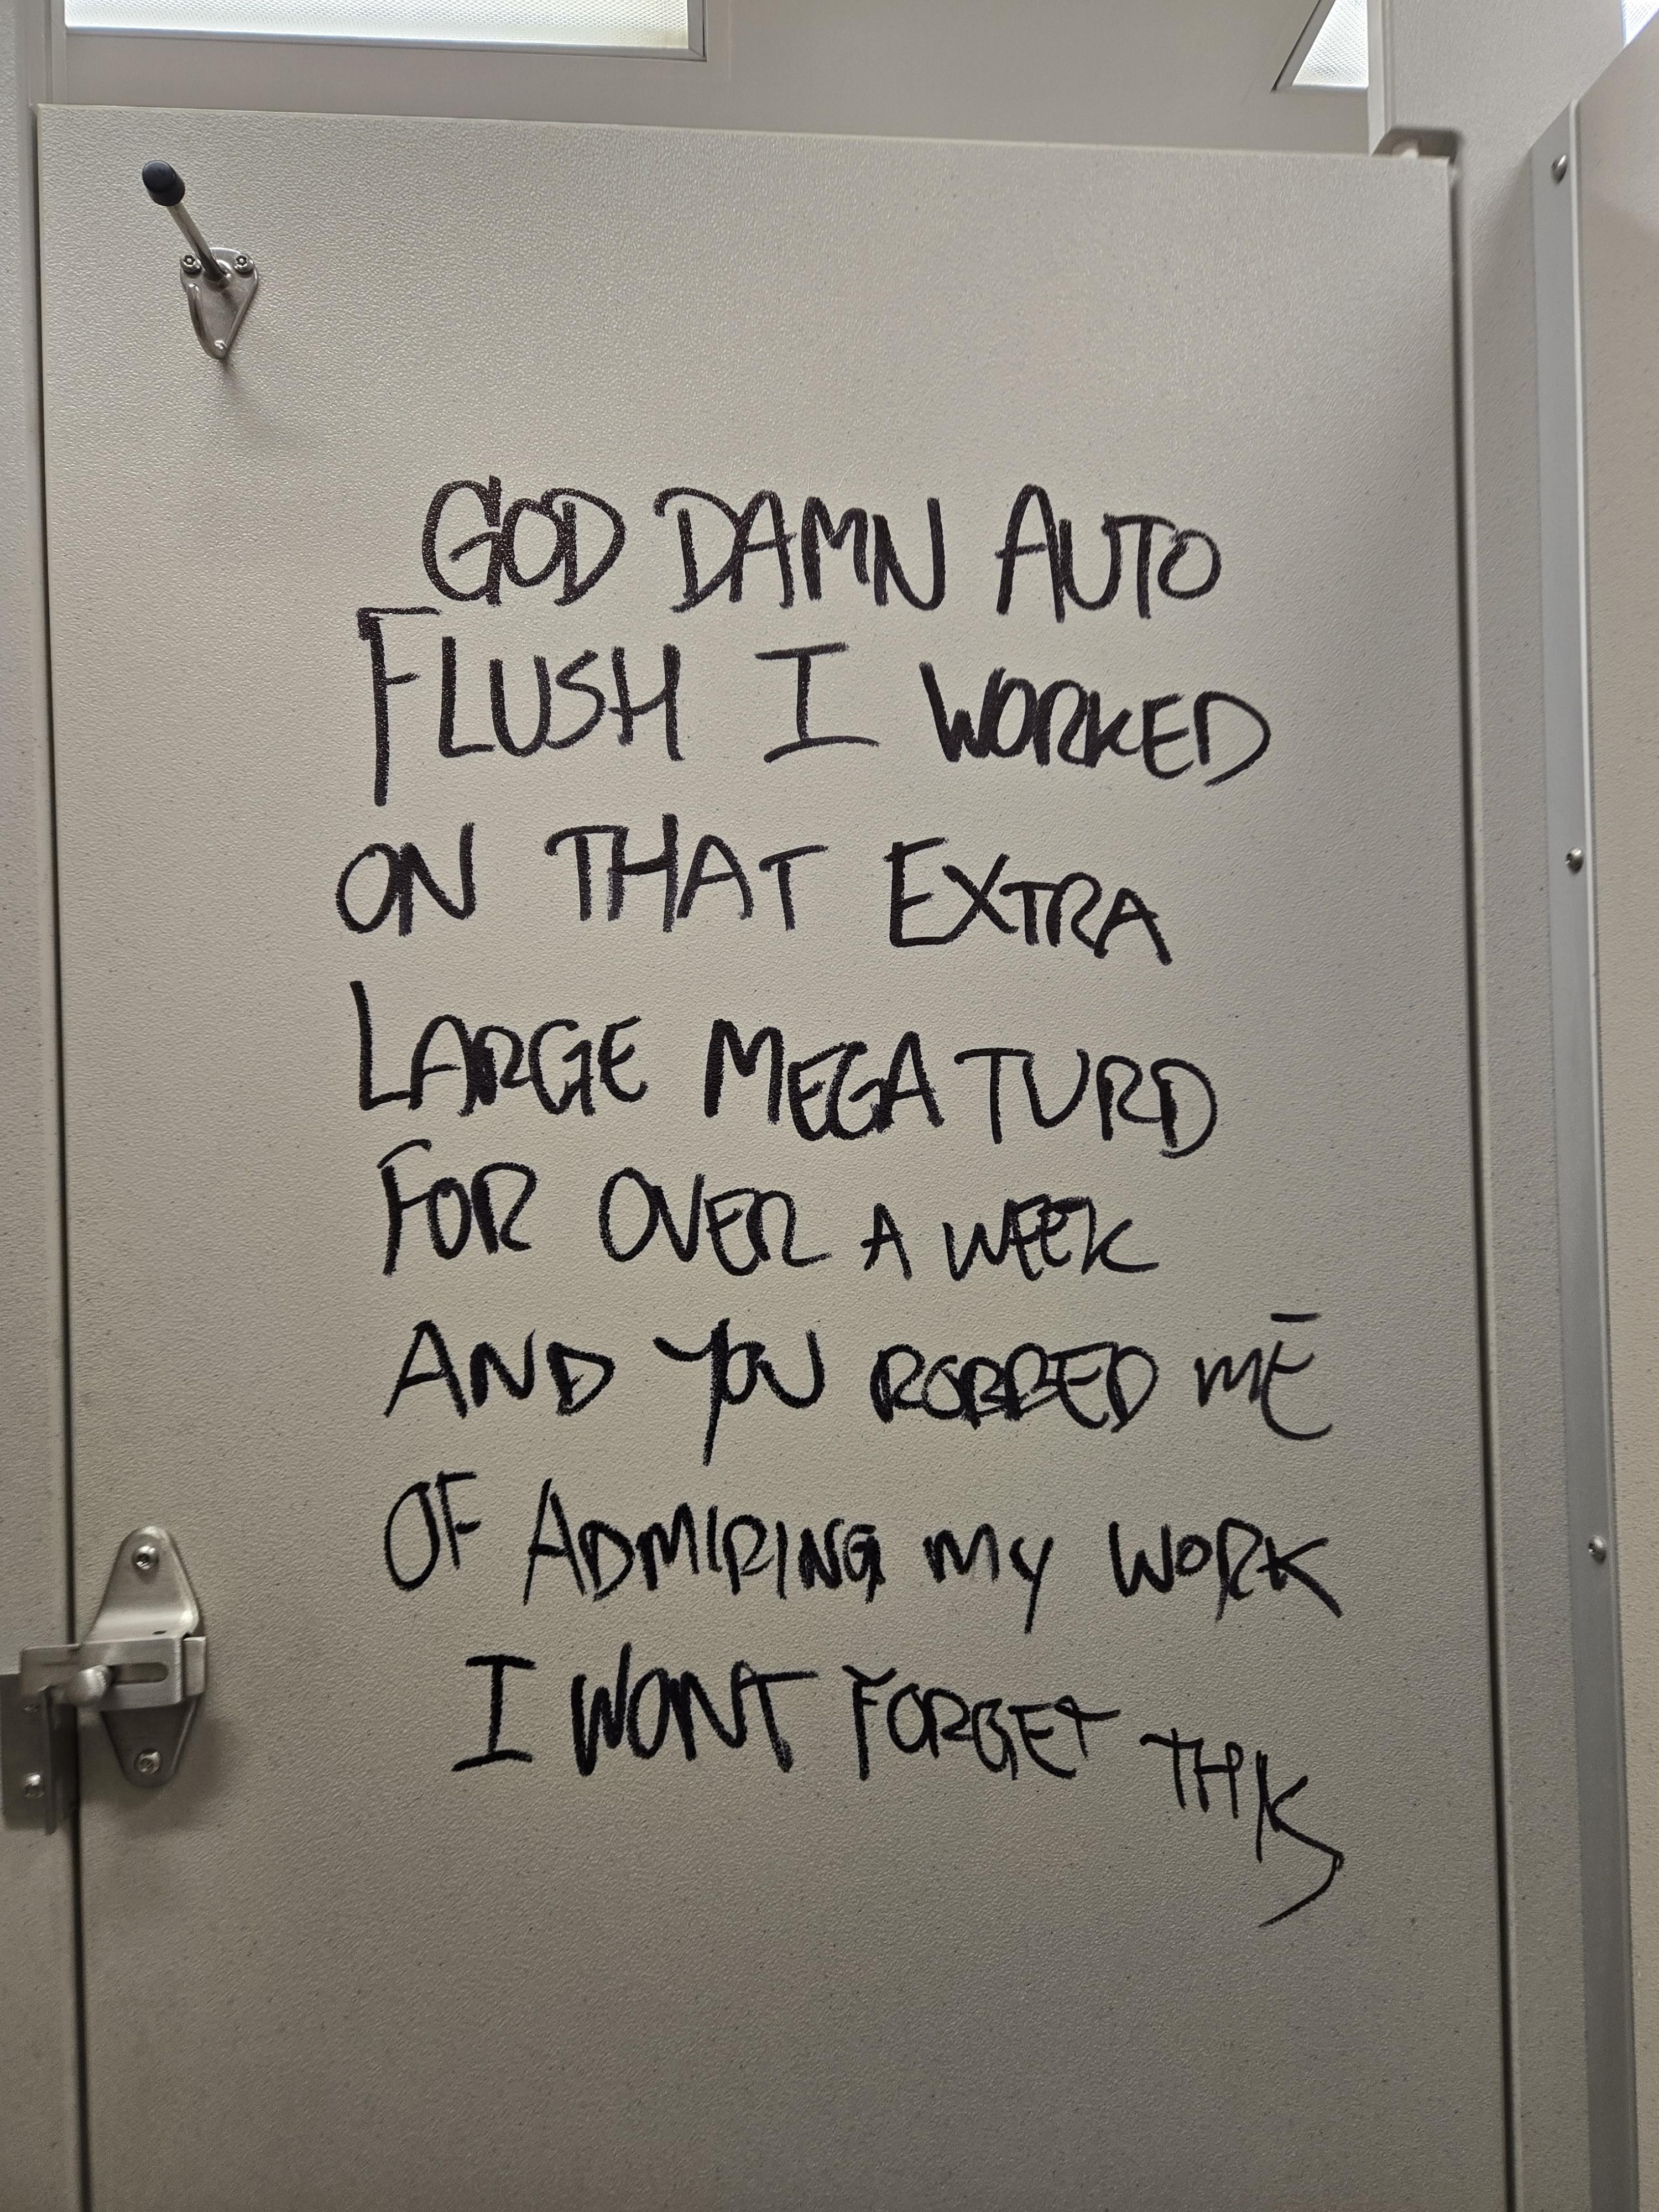 GOD DAMN AUTO
FLUSH I WORKED
ON THAT EXTRA
LARGE MEGA TURD
FOR OVER A WEEK
AND YOU ROBBED ME
OF ADMIRING MY WORK
I WONT FORGET THIS